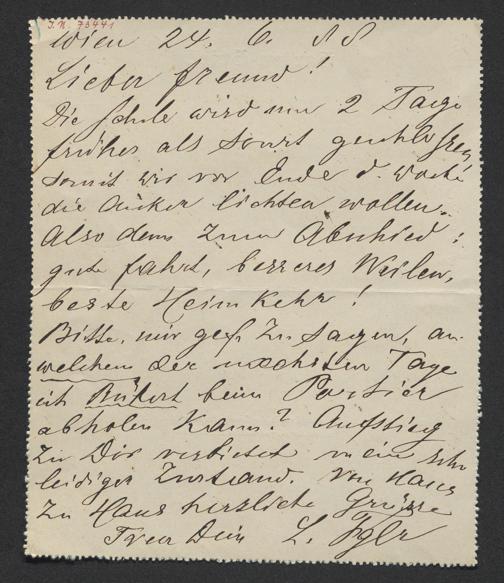 J.N. 73441
Wien 24. 6. 88
Lieber Freund!
Die Schule wird um 2 Tage
früher als sonst geschlossen,
somit wir vor Ende d. Woche
die Anker lichten wollen.
Also denn zum Abschied:
gute Fahrt, besseres Weilen,
beste Heimkehr!
Bitte, mir gef. zu sagen, an
welchem der nächsten Tage
ich beim Portier
abholen kann? Aufstieg
zu Dir verbietet mein sehr
leidiger Zustand. Von Haus
zu Haus herzliche Grüsse
Treu Dein L.